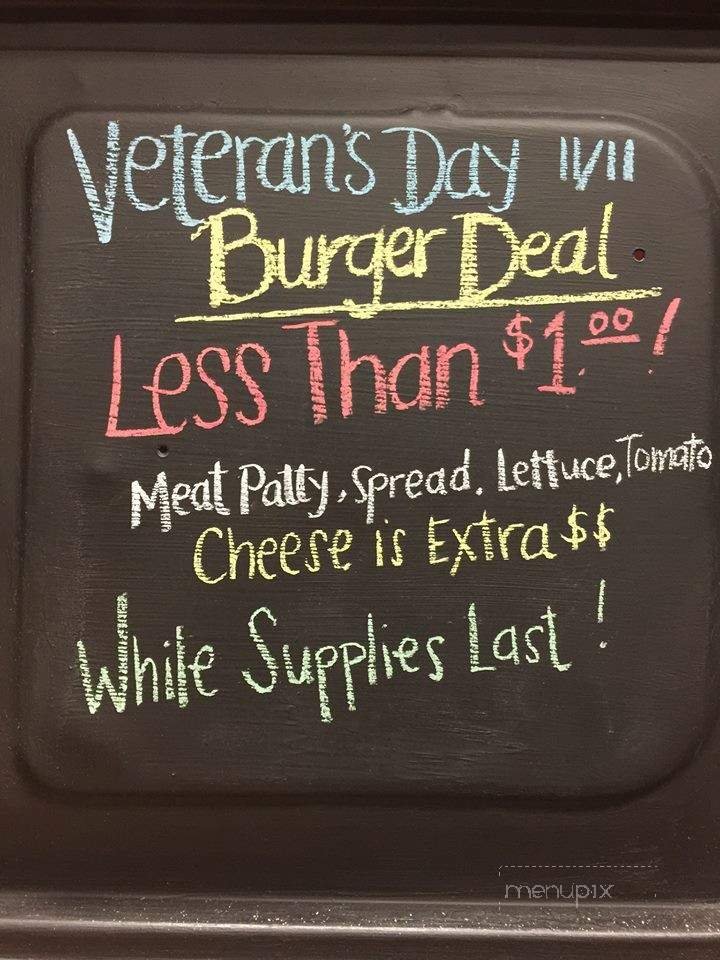 Veteran's Day 11/11
Burger Deal
Less Than $1.00!
Meat Patty, Spread, Lettuce, Tomato
Cheese is Extra $$
While Supplies Last!
menupix